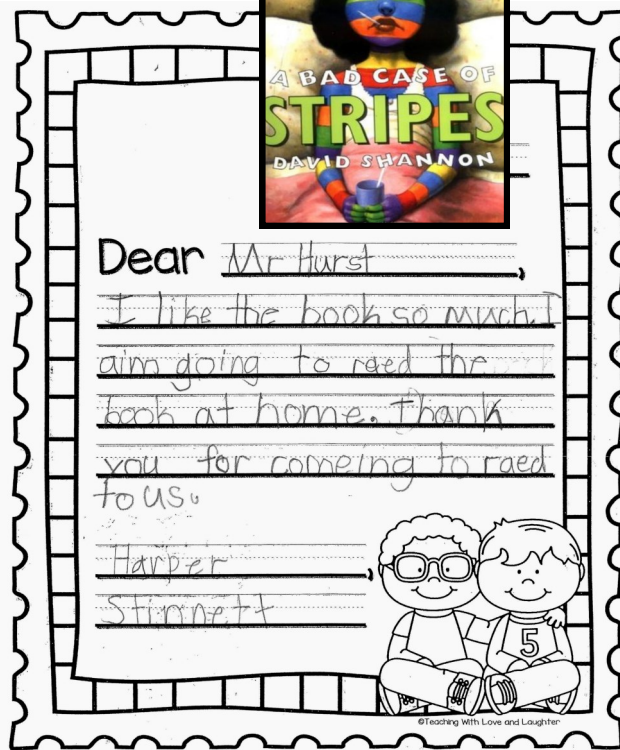 A BAD CASE OF
STRIPES
DAVID SHANNON
Dear Mr Hurst,
I like the book so much. I
aim going to raed the
book at home. Thank
you for comeing to raed
to us.
Harper,
Stinnett
5
©Teaching With Love and Laughter